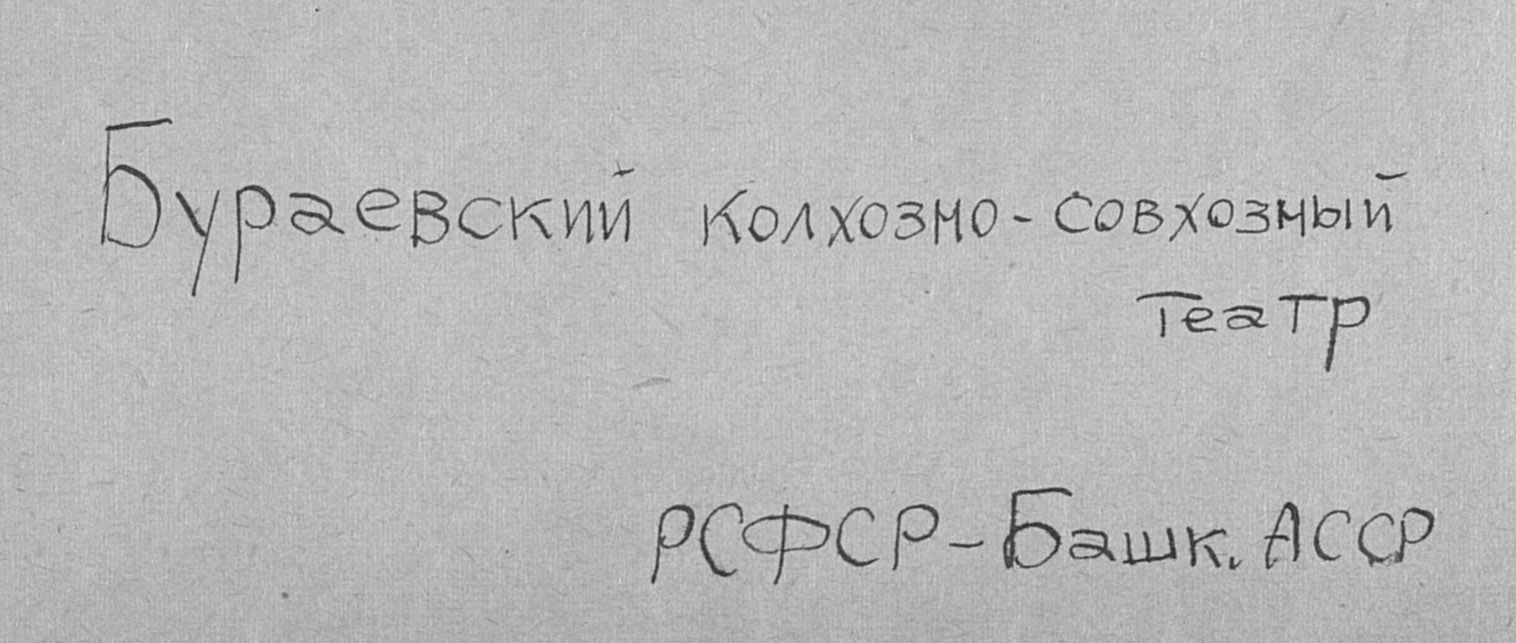 Бураевский колхозно-совхозный
театр
РСФСР-Башк. АССР